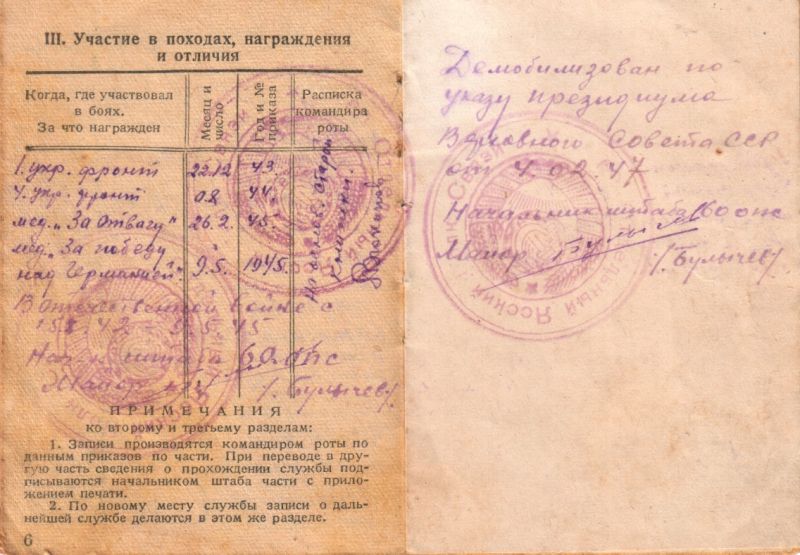 III. Участие в походах, награждения
и отличия
Когда, где участвовал
в боях.
За что награжден
Месяц и
число
Год и №
приказа
Расписка
командира
роты
1 укр. фронт 22.12 43.
4 укр. фронт 08 44.
мед. „За Отвагу" 26.2. 45.
мед. „За победу
над Германией". 9.5. 1945.
В отечественной войне с
Начал. штаба 60 опс
Майор /Булычев/
ПРИМЕЧАНИЯ
ко второму и третьему разделам:
1. Записи производятся командиром роты по
данным приказов по части. При переводе в дру-
гую часть сведения о прохождении службы под-
писываются начальником штаба части с прило-
жением печати.
2. По новому месту службы записи о даль-
нейшей службе делаются в этом же разделе.
6
Демобилизован по
указу президиума
Верховного Совета ССР
от 4.02.47
Начальник штаба 60 опс
Майор /Булычев/
Ясский